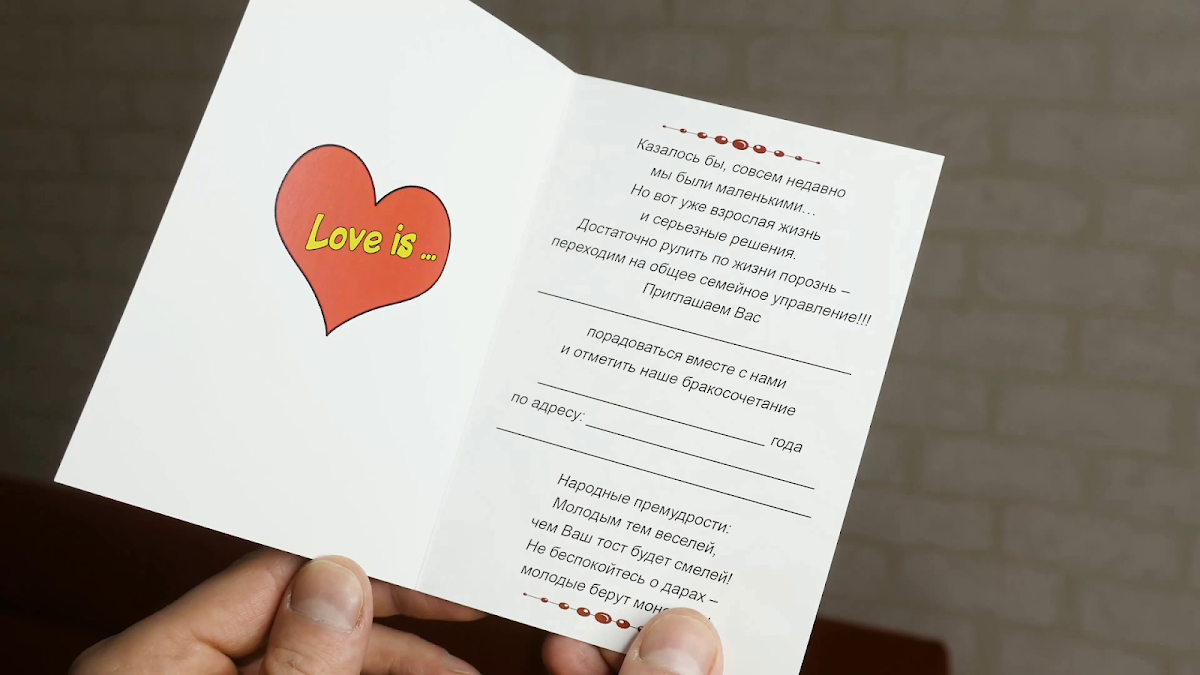 Love is ...
Казалось бы, совсем недавно
мы были маленькими...
Но вот уже взрослая жизнь
и серьезные решения.
Достаточно рулить по жизни порознь –
переходим на общее семейное управление!!!
Приглашаем Вас
порадоваться вместе с нами
и отметить наше бракосочетание
года
по адресу:
Народные премудрости:
Молодым тем веселей,
чем Ваш тост будет смелей!
Не беспокойтесь о дарах –
молодые берут